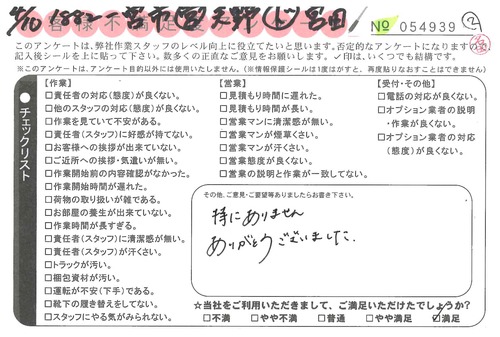 4/10 1882 一宮市宮 天野(ト)宮田
客様不満足度
№ 054939 ②
このアンケートは、弊社作業スタッフのレベル向上に役立てたいと思います。否定的なアンケートになりますので
記入後シールを上に貼って下さい。数多くの正直なご意見をお願いします。✓印は、いくつでも結構です。
※このアンケートは、アンケート目的以外には使用いたしません。(情報保護シールは1度はがすと、再度貼りなおすことはできません)
チェックリスト
【作業】
□責任者の対応(態度)が良くない。
□他のスタッフの対応(態度)が良くない。
□作業を見ていて不安がある。
□責任者(スタッフ)に好感が持てない。
□お客様への挨拶が出来ていない。
□ご近所への挨拶・気遣いが無い。
□作業開始前の内容確認がなかった。
□作業開始時間が遅れた。
□荷物の取り扱いが雑である。
□お部屋の養生が出来ていない。
□作業時間が長すぎる。
□責任者(スタッフ)に清潔感が無い。
□責任者(スタッフ)が汗くさい。
□トラックが汚い。
□梱包資材が汚い。
□運転が不安(下手)である。
□靴下の履き替えをしてない。
□スタッフにやる気がみられない。
【営業】
□見積もり時間に遅れた。
□見積もり時間が長い。
□営業マンに清潔感が無い。
□営業マンが煙草くさい。
□営業マンが汗くさい。
□営業態度が良くない。
□営業の説明と作業が一致してない。
【受付・その他】
□電話の対応が良くない。
□オプション業者の説明
・作業が良くない。
□オプション業者の対応
(態度)が良くない。
その他、ご意見・ご要望等ありましたらお書き下さい。
特にありません
ありがとうございました.
☆当社をご利用いただきまして、ご満足いただけたでしょうか?
□不満 □やや不満 □普通 □やや満足 ☑満足